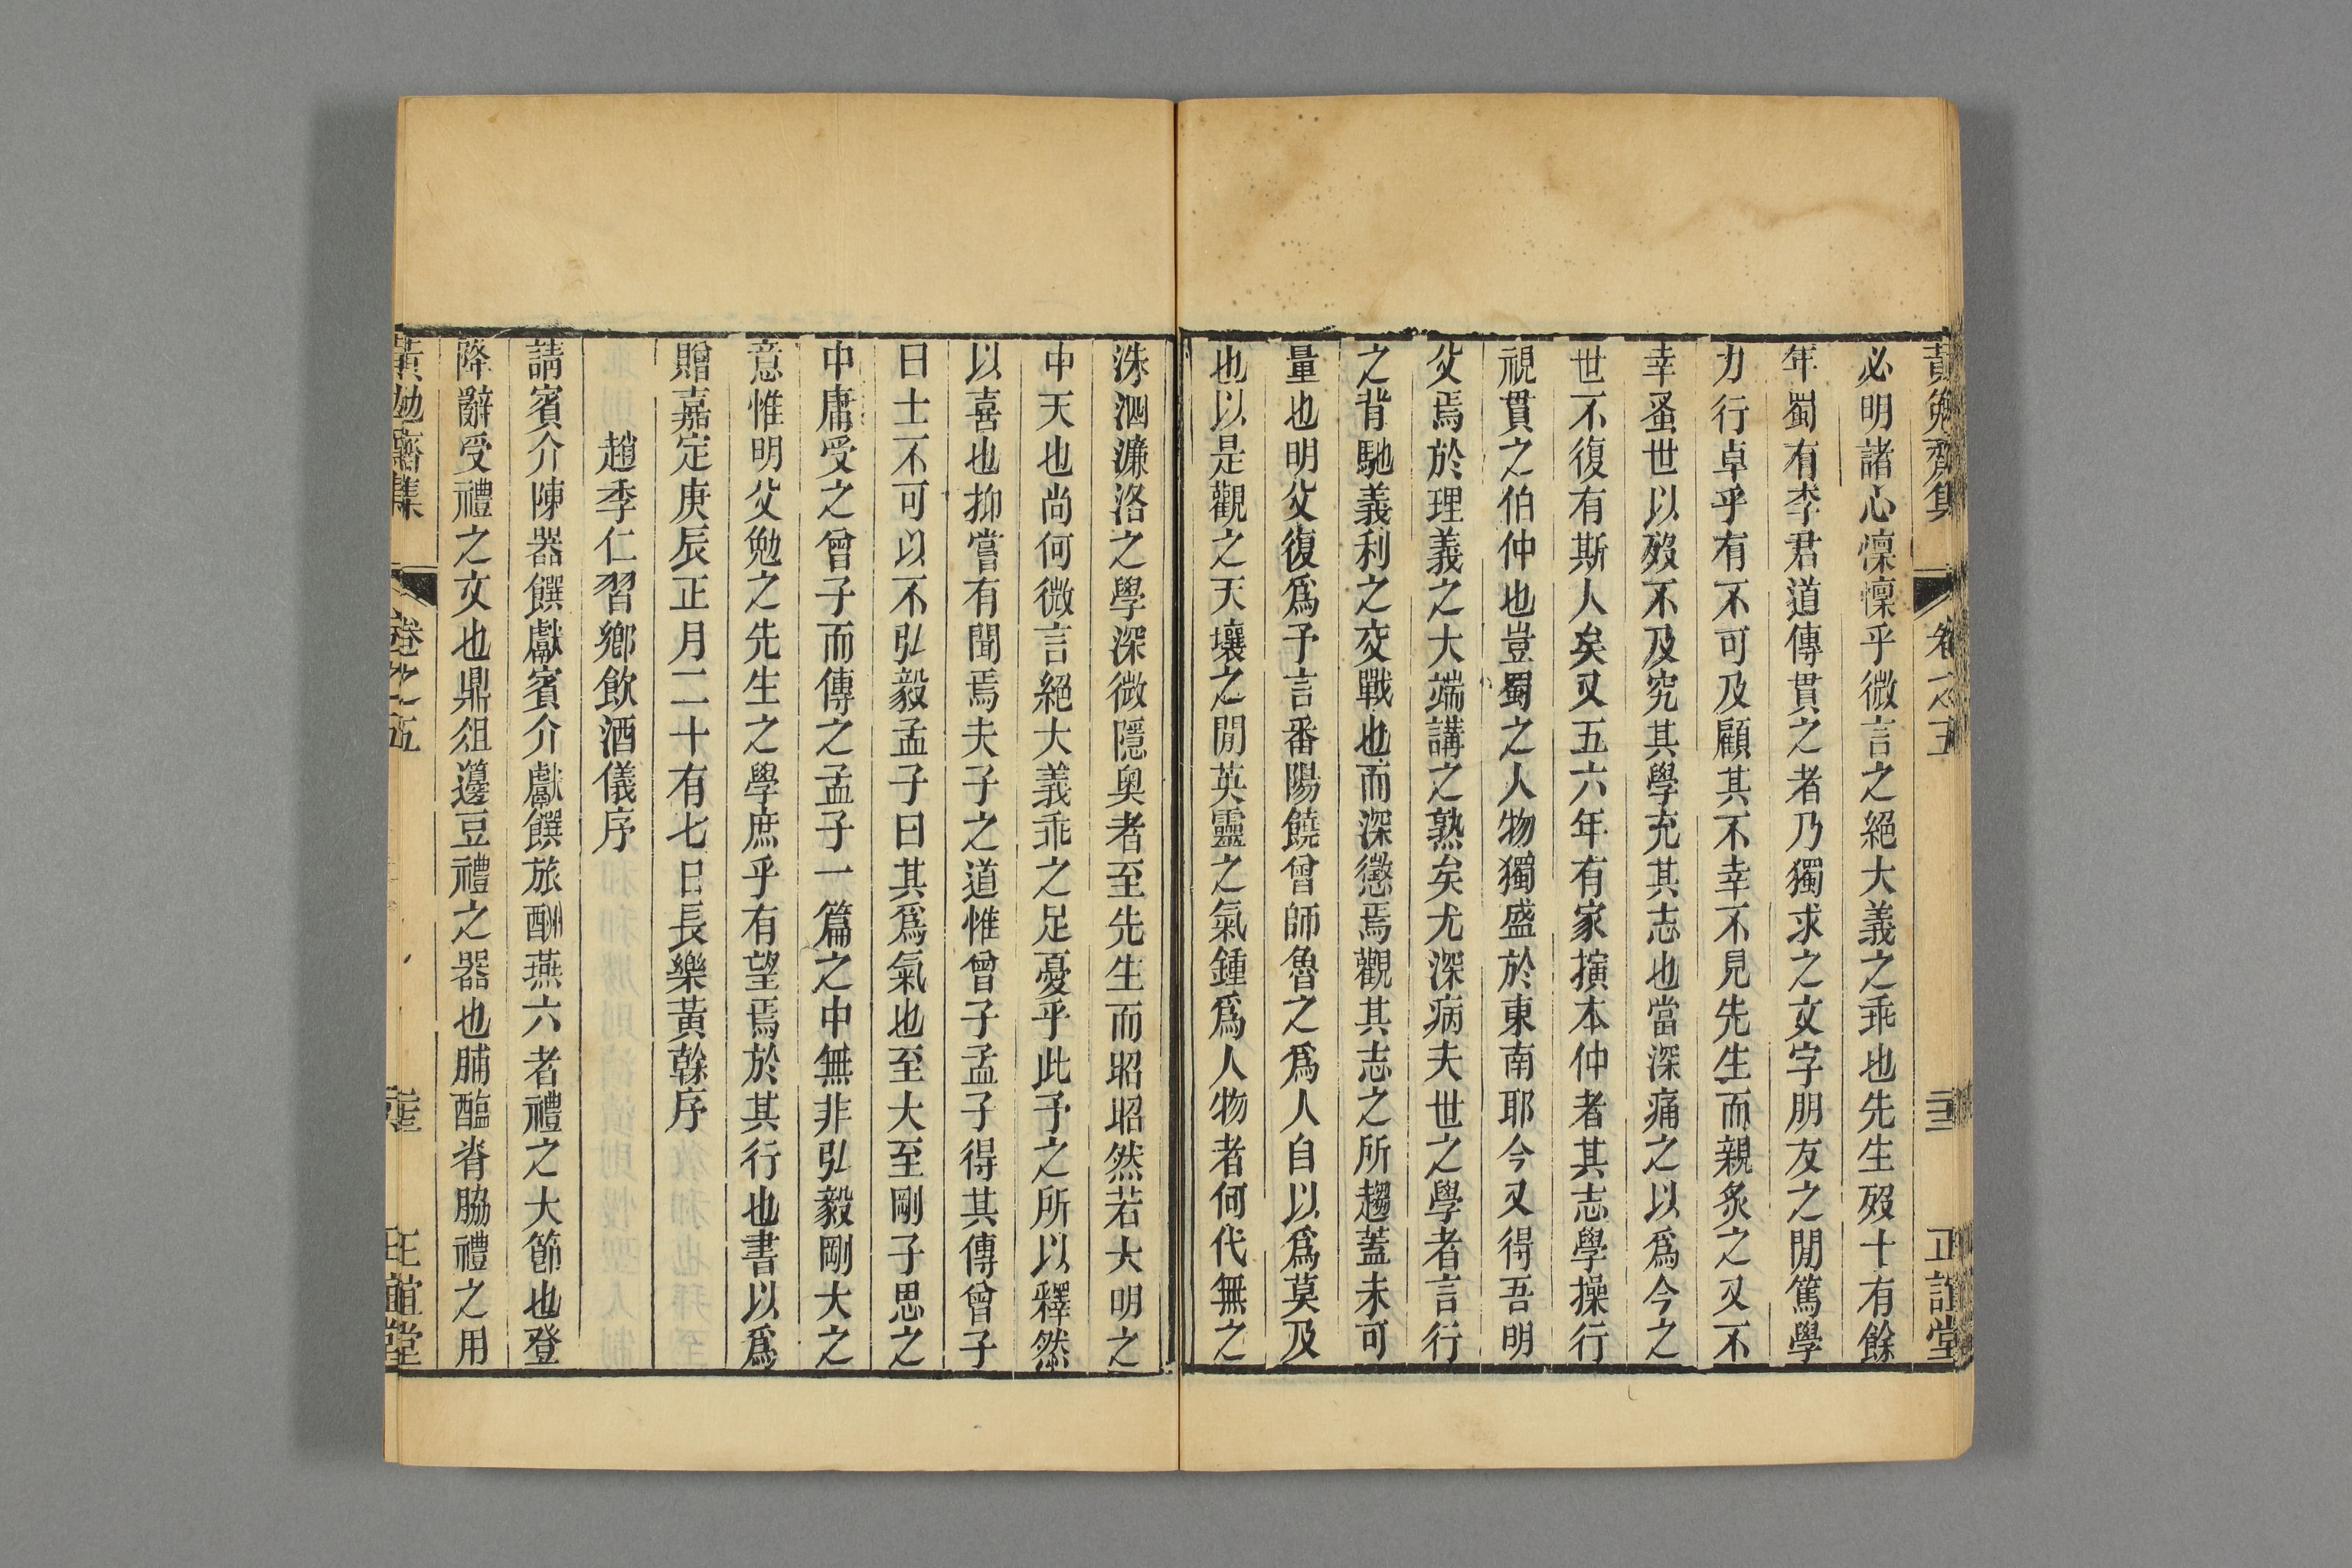 黃勉齋集 卷之五 正誼堂
必明諸心懍懍乎微言之絕大義之乖也先生歿十有餘
年蜀有李君道傳貫之者乃獨求之文字朋友之閒篤學
力行卓乎有不可及顧其不幸不見先生而親炙之又不
幸蚤世以歿不及究其學充其志也當深痛之以爲今之
世不復有斯人矣又五六年有家擯本仲者其志學操行
視貫之伯仲也豈蜀之人物獨盛於東南耶今又得吾明
父焉於理義之大端講之熟矣尤深病夫世之學者言行
之背馳義利之交戰也而深懲焉觀其志之所趨蓋未可
量也明父復爲予言番陽饒曾師魯之爲人自以爲莫及
也以是觀之天壤之閒英靈之氣鍾爲人物者何代無之
洙泗濂洛之學深微隱奧者至先生而昭昭然若大明之
中天也尚何微言絕大義乖之足憂乎此予之所以釋然
以喜也抑嘗有聞焉夫子之道惟曾子孟子得其傳曾子
曰士不可以不弘毅孟子曰其爲氣也至大至剛子思之
中庸受之曾子而傳之孟子一篇之中無非弘毅剛大之
意惟明父勉之先生之學庶乎有望焉於其行也書以爲
贈嘉定庚辰正月二十有七日長樂黃榦序
趙季仁習鄉飲酒儀序
請賓介陳器饌獻賓介獻饌旅酬燕六者禮之大節也登
降辭受禮之文也鼎俎籩豆禮之器也脯醢脊脇禮之用
黃勉齋集 卷之五 正誼堂